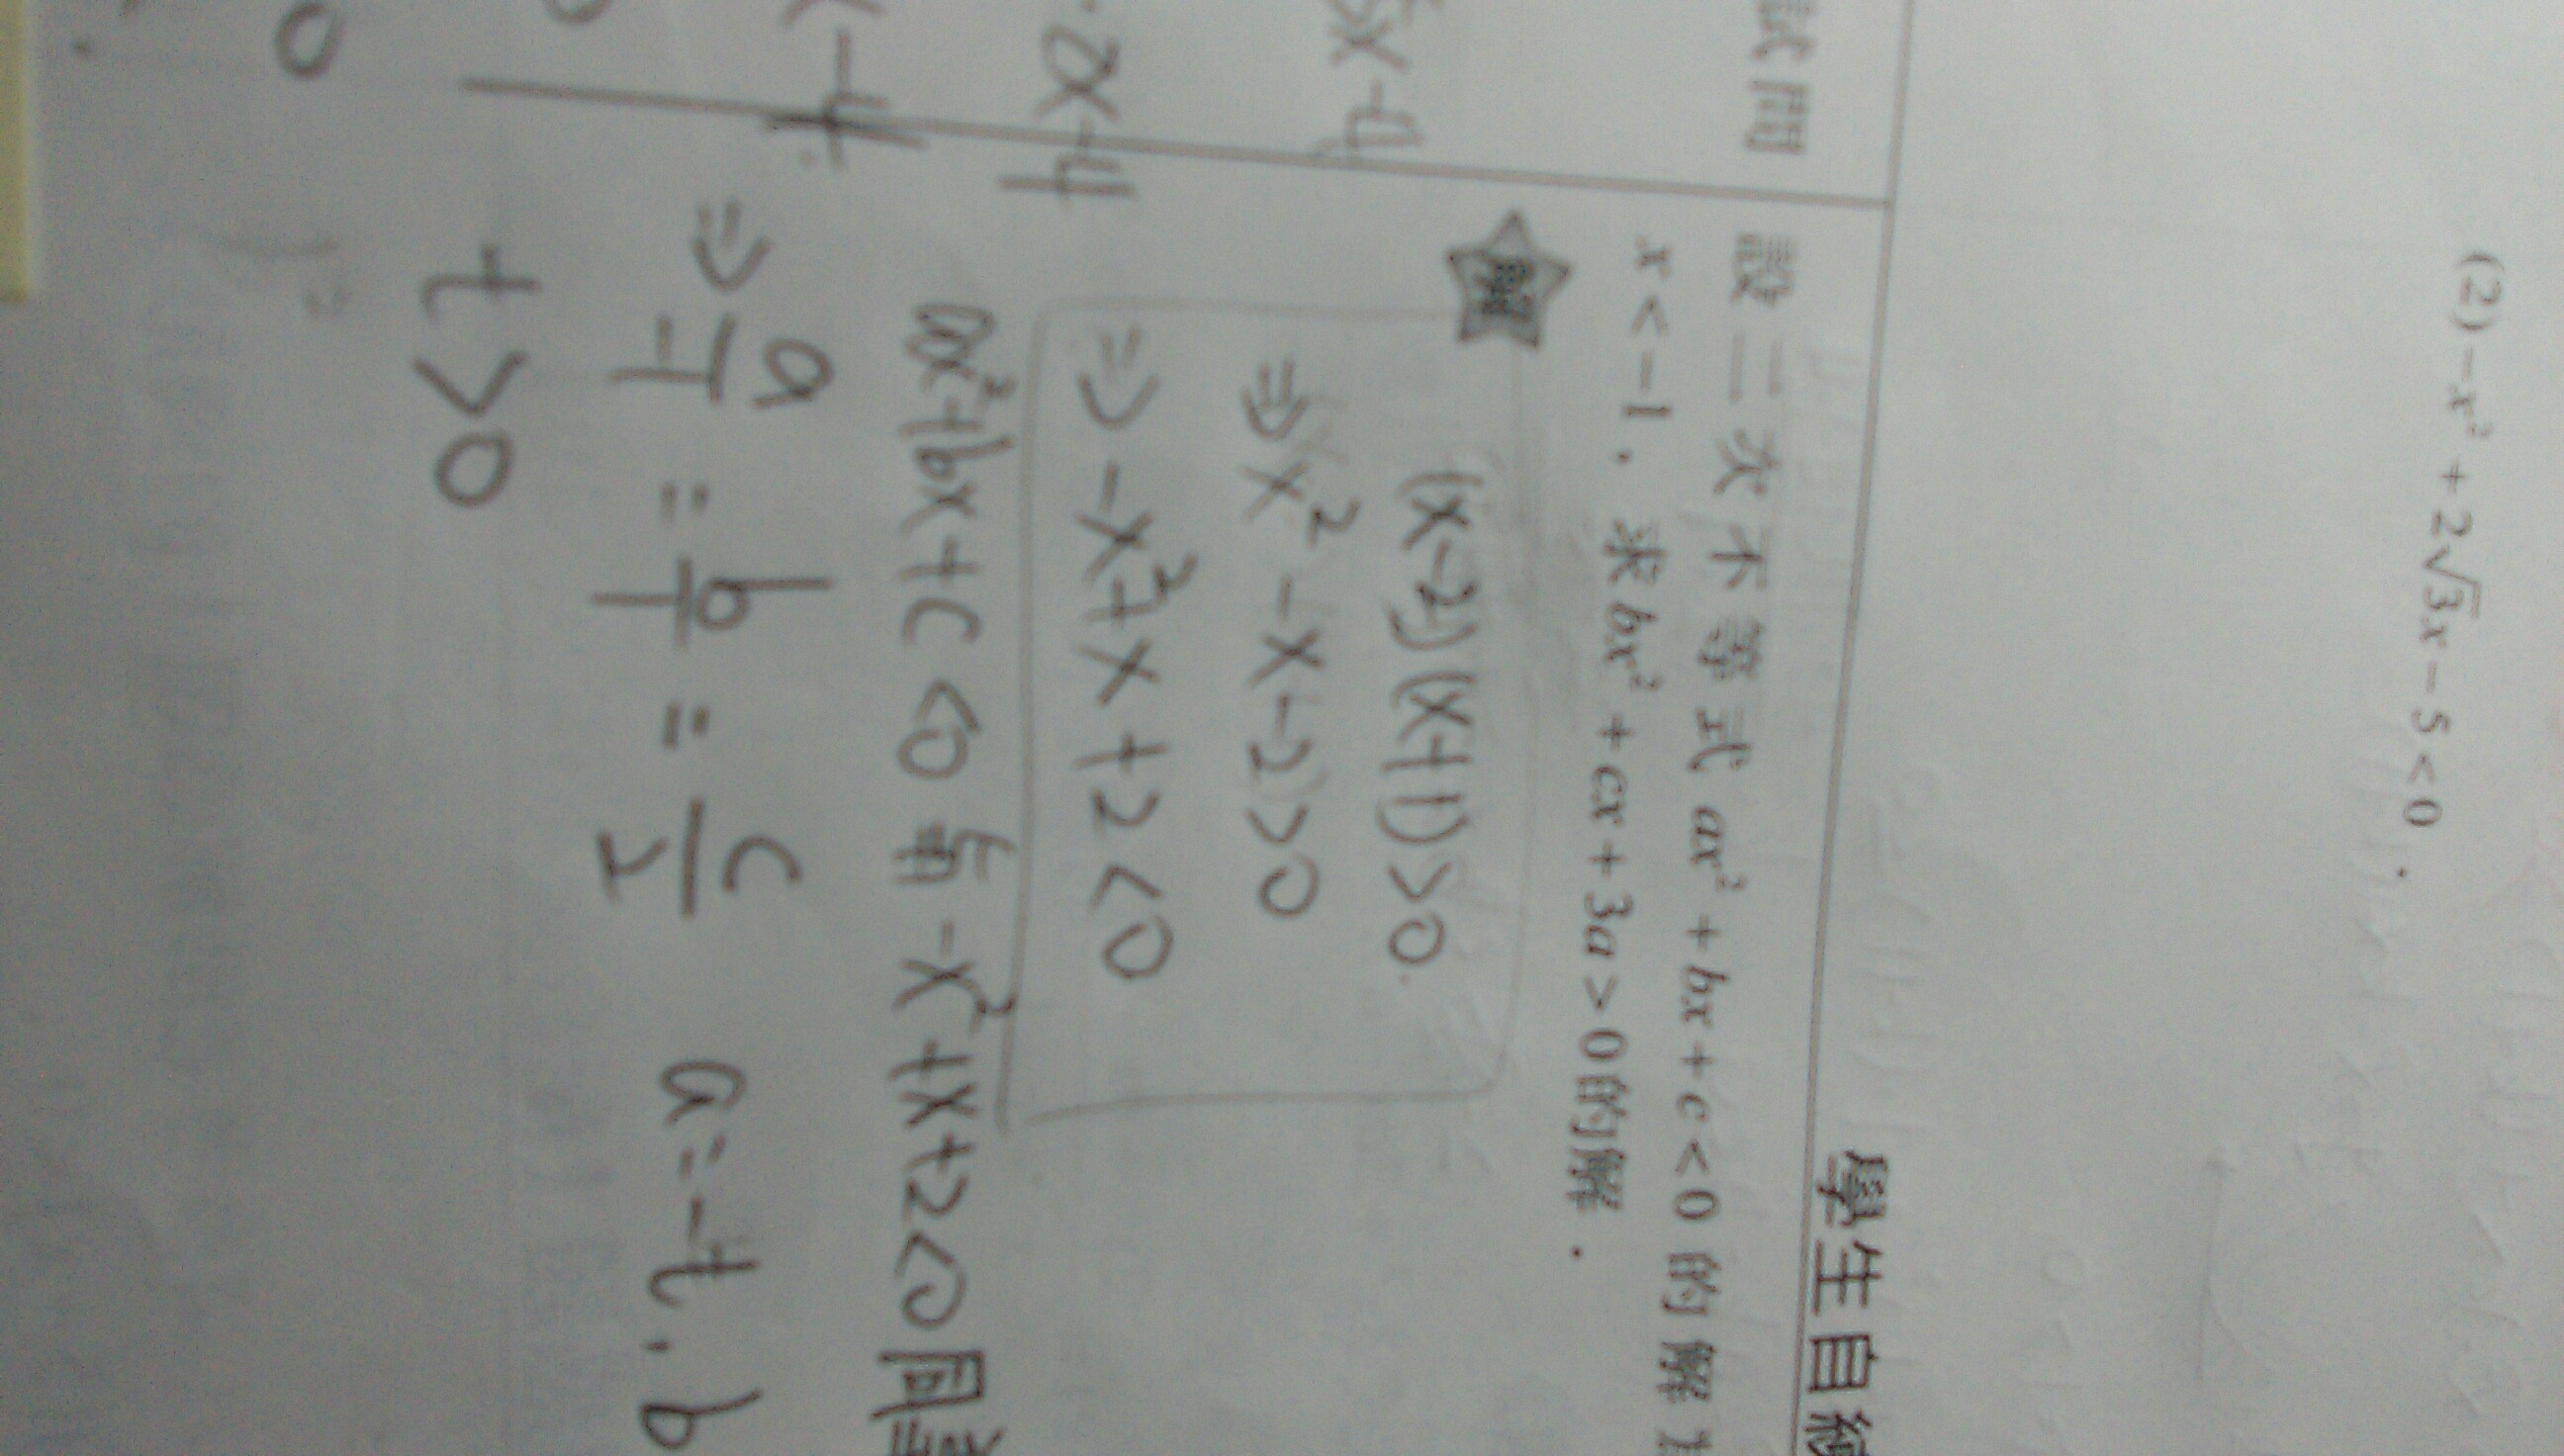 (2) −x² + 2√3x − 5 < 0 .
學生自
試問
設二次不等式 ax² + bx + c < 0 的解
x < −1 . 求 bx² + cx + 3a > 0 的解 .
解
(x-2)(x+1)>0.
⇒ x² - x - 2>0
⇒ -x²+x+2<0
ax²+bx+c<0 與 -x²+x+2<0 同
⇒ a/-1 = b/1 = c/2 a=-t, b
t>0
5x-4
2x-4
x-4
0